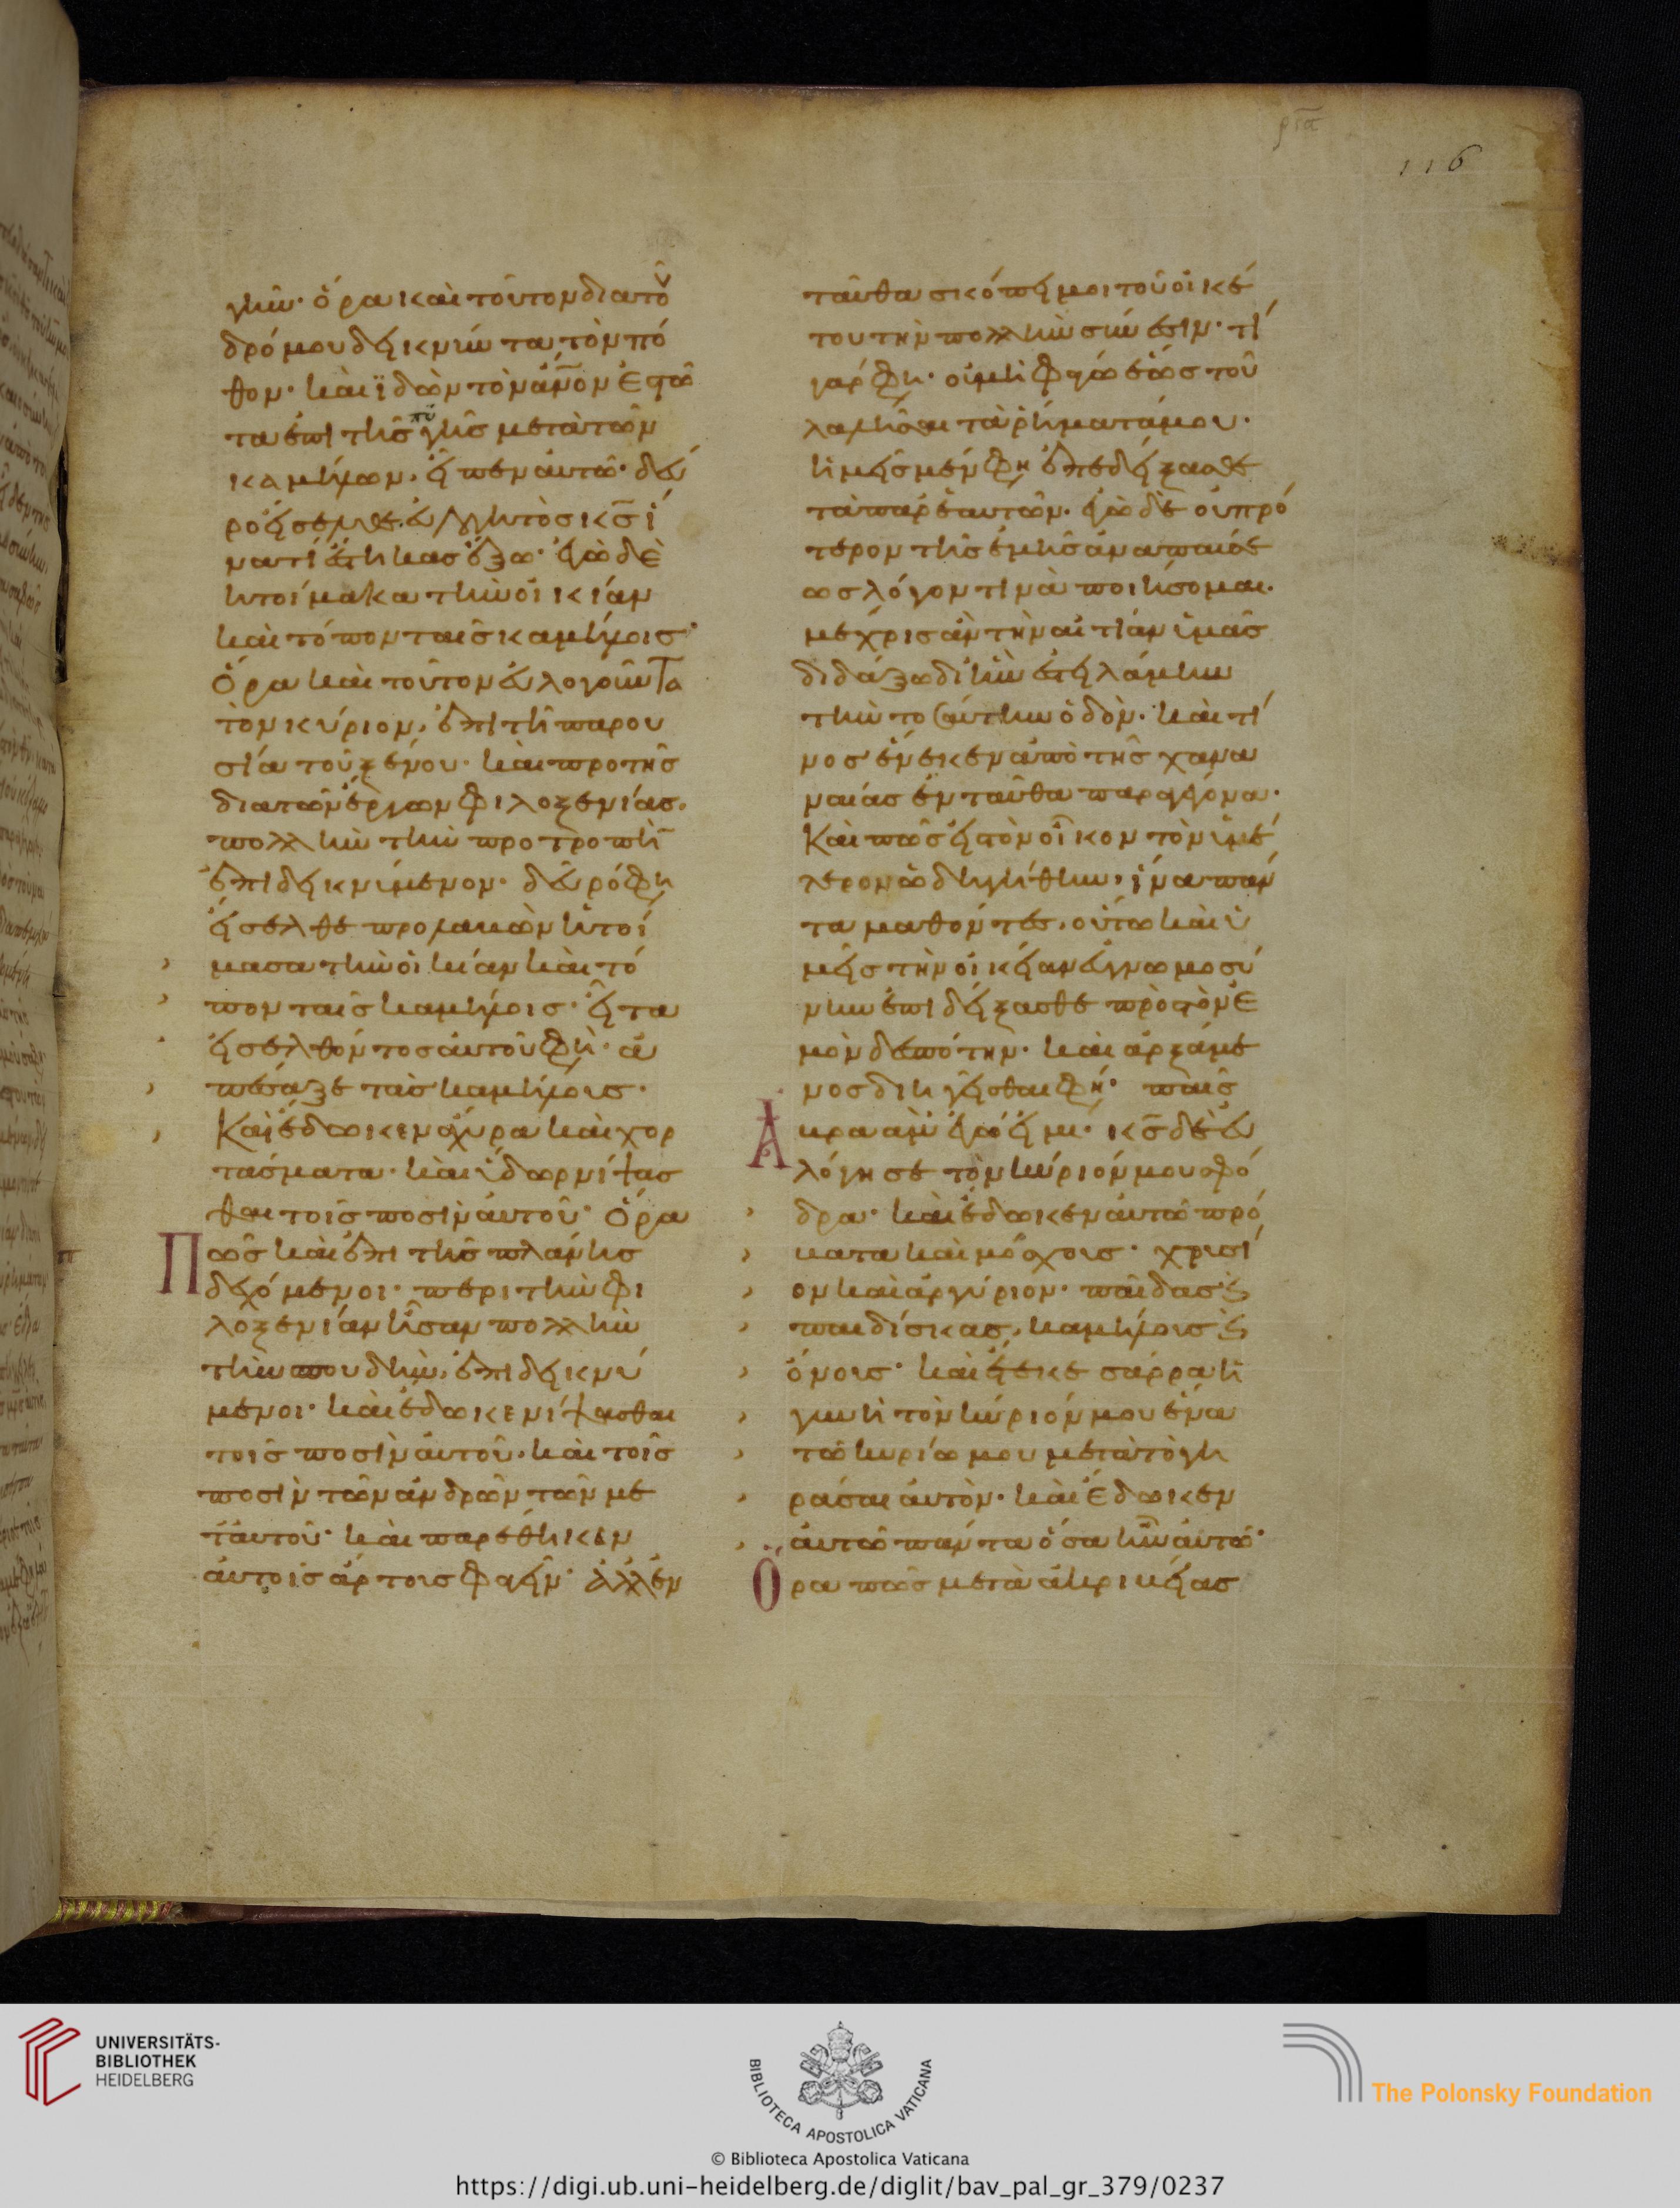 ριϛ
116
γὴν· ὅρα καὶ τοῦτον διὰ τοῦ
δρόμου δεικνύντα τὸν πό
θον· καὶ ἰδὼν τὸν ἄνον ἑστῶ
τα ἐπὶ τῆς πηγῆς μετὰ τῶν
καμήλων, εἶπεν αὐτῶ· δεῦ
ρο εἴσελθε. εὐλογητὸς κς ἵ
νατί ἕστηκας ἔξω· ἐγὼ δὲ
ἡτοίμακα τὴν οἰκίαν
καὶ τόπον ταῖς καμήλοις·
Ὅρα καὶ τοῦτον εὐλογοῦντα
τὸν κύριον, ἐπὶ τῆ παρου
σία τοῦ ξένου· καὶ πρὸ τῆς
διὰ τῶν ἔργων φιλοξενίας.
πολλὴν τὴν προτροπὴ
ἐπιδεικνύμενον· δεῦρό φη
εἴσελθε προλαβὼν ἡτοί
μασα τὴν οἰκίαν καὶ τό
πον ταῖς καμήλοις· εἶτα
εἰσελθόντος αὐτοῦ φη· ἀ
πέσαξε τὰς καμήλοις·
Καὶ ἔδωκεν ἄχυρα καὶ χορ
τάσματα· καὶ ὕδωρ νίψας
θαι τοῖς ποσὶν αὐτοῦ· Ὅρα
πῶς καὶ ἐπὶ τῆς πλάνης
δεχόμενοι· περὶ τὴν φι
λοξενίαν ἦσαν πολλὴν
τὴν σπουδὴν, ἐπιδεικνύ
μενοι· καὶ ἔδωκε νίψασθαι
τοῖς ποσὶν αὐτοῦ· καὶ τοῖς
ποσὶν τῶν ἀνδρῶν τῶν με
τ' αὐτοῦ· καὶ παρέθηκεν
αὐτοῖς ἄρτοις φαγεῖν· ἀλλ' ἐν
ταῦθα σκόπει μοι τοῦ οἰκέ
του τὴν πολλὴν σύνεσιν· τί
γάρ φη· οὐ μὴ φάγω ἕως τοῦ
λαλῆσαι τὰ ῥήματά μου·
ἡμεῖς μέν φη ἐπεδείξασθε
τὰ παρ' ἑαυτῶν. ἐγὼ δὲ οὐ πρό
τερον τῆς ἐμῆς ἀναπαύσε
ως λόγον τινὰ ποιήσομαι.
μέχρις ἂν τὴν αἰτίαν ὑμᾶς
διδάξω δι' ἣν ἐστειλάμην
τὴν τοσαύτην ὁδὸν. καὶ τί
νος ἕνεκεν ἀπὸ τῆς χανα
ναίας ἐνταῦθα παραγέγονα·
Καὶ πῶς εἰς τὸν οἶκον τὸν ὑμέ
τερον ὡδηγήθην, ἵνα πάν
τα μαθόντες, οὕτω καὶ ὑ
μεῖς τὴν οἰκείαν εὐγνωμοσύ
νην ἐπιδείξασθε πρὸς τὸν ἐ
μὸν δεσπότην· καὶ ἀρξάμε
νος διηγεῖσθαι φη· παῖς
ἀβραὰμ ἐγώ εἰμι· κς δὲ εὐ
λόγησε τὸν κύριόν μου σφό
δρα· καὶ ἔδωκεν αὐτῶ πρό
βατα καὶ μόσχοις· χρυσί
ον καὶ ἀργύριον· παῖδας ϗ
παιδίσκας, καμήλοις ϗ
ὄνοις· καὶ ἔτεκε σάρρα ἡ
γυνὴ τὸν κύριόν μου ἕνα
τῶ κυρίω μου μετὰ τὸ γη
ράσαι αὐτὸν· καὶ ἔδωκεν
αὐτῶ πάντα ὅσα ἦν αὐτῶ·
Ὅρα πῶς μετὰ ἀκριβείας
UNIVERSITÄTS-
BIBLIOTHEK
HEIDELBERG
BIBLIOTECA APOSTOLICA VATICANA
The Polonsky Foundation
© Biblioteca Apostolica Vaticana
https://digi.ub.uni-heidelberg.de/diglit/bav_pal_gr_379/0237